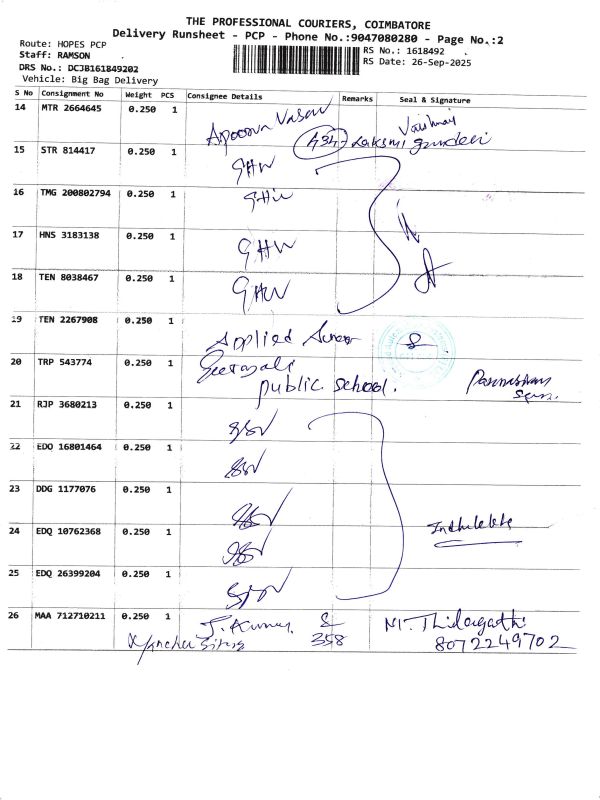 THE PROFESSIONAL COURIERS, COIMBATORE
Delivery Runsheet - PCP - Phone No.:9047080280 - Page No.:2
Route: HOPES PCP
Staff: RAMSON
RS No.: 1618492
DRS No.: DCJB161849202
RS Date: 26-Sep-2025
Vehicle: Big Bag Delivery
S No Consignment No Weight PCS Consignee Details Remarks Seal & Signature
14 MTR 2664645 0.250 1
15 STR 814417 0.250 1 GHW
16 TMG 200802794 0.250 1 GHW
17 HNS 3183138 0.250 1 GHW
18 TEN 8038467 0.250 1 GHW
19 TEN 2267908 0.250 1 Applied
20 TRP 543774 0.250 1
public school.
21 RJP 3680213 0.250 1
22 EDO 16801464 0.250 1
23 DDG 1177076 0.250 1
24 EDQ 10762368 0.250 1
25 EDQ 26399204 0.250 1
26 MAA 712710211 0.250 1 J. Kumar
358 8072249702